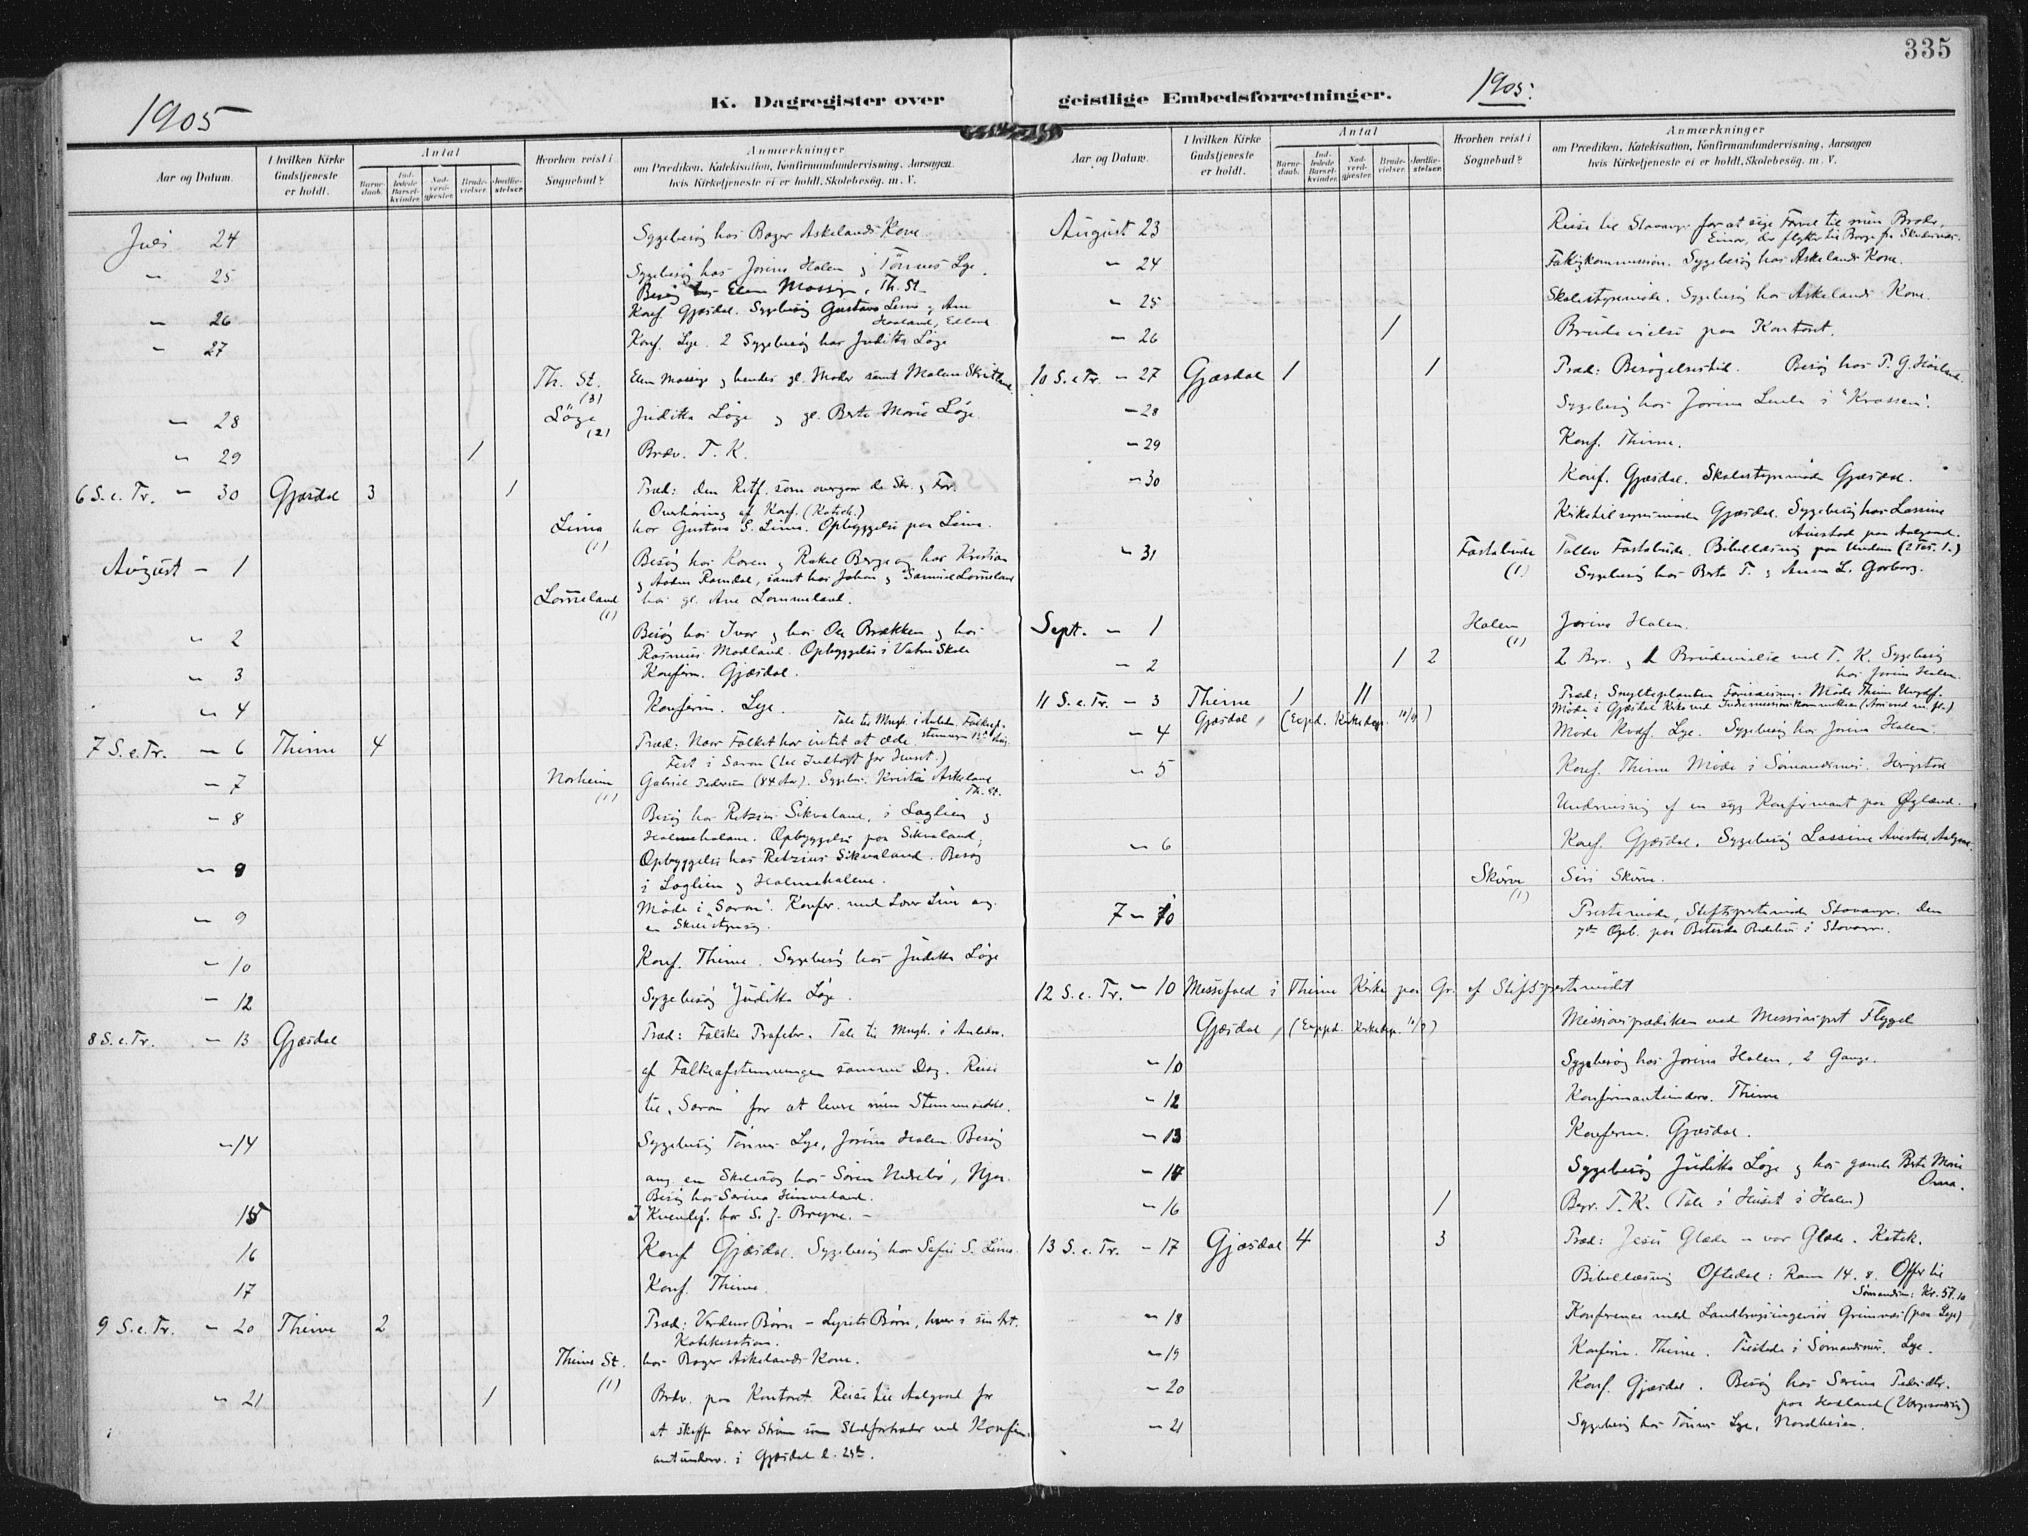 335
1905
K. Dagregister over geistlige Embedsforretninger.
1905.
Aar og Datum.
I hvilken Kirke Gudstjeneste er holdt.
Antal
Barnedaab.
Indledede Barselkvinder.
Nadverdgjester.
Brudevielser.
Jordfæstelser.
Hvorhen reist i Sognebud?
Anmærkninger
om Prædiken, Katekisation, Konfirmandundervisning, Aarsagen
hvis Kirketjeneste ei er holdt, Skolebesög. m. V.
Juli 24 Sygebesøg hos Boger Askelands Kone.
" 25 Sygebesøg hos Jorina Halen og Tönnes Lye.
Besøg hos Elen Mossige, Th. St.
" 26 Konf. Gjæsdal. Sygebesøg Gustava Lima og Ane
Haaland, Edland
" 27 Konf. Lye. 2 Sygebesøg hos Juditta Löge
Th. St. (3) Elen Mossige og hendes gl. Moder samt Malene
" 28 Löge (2) Juditta Löge og gl. Berte Marie Löge.
" 29 1 Brdv. T. K.
6 S. e. Tr. " 30 Gjæsdal 3 1 Præd: Den Retf. som overgaar de Skr. og Far.
Overhöring af Konf. (Katek.)
Lima (1) hos Gustava S. Lima. Opbyggelse paa Lima.
August - 1 Besøg hos Karen og Rakel Berge og hos Kristian
og Anders Ramdal, samt hos Johan og Samuel Lomeland
Lomeland (1) hos gl. Ane Lommeland.
" 2 Besøg hos Ivar og hos Ole Brækken og hos
Rasmus Modland. Opbyggelse i Vatne Skole
" 3 Konfirm. Gjæsdal.
" 4 Konfirm. Lye.
Tale til Mngh. i Anledn. Folkeaf-
stemningen
7 S. e. Tr. - 6 Thime 4 Præd: Naar Folket har intet at æde.
Fest i Saron
- 7 Norheim (1) Gabriel Pedersen (84 Aar). Sygebs. Kristi Askeland
Th. St.
- 8 Besøg hos Retzius Sikvaland, i Loglien og
Holmehalane. Opbyggelse paa Sikvaland,
- 9 Opbyggelse hos Retzius Sikvaland. Besøg
i Loglien og Holmehalene.
- 9 Møde i "Saron". Konfer. med Lærer Lima ang.
en
- 10 Konf. Thime. Sygebesøg hos Juditta Löge
- 12 Sygebesøg Juditta Löge.
8 S. e. Tr. - 13 Gjæsdal Præd: Falske Profeter. Tale til Mngh. i Anledn.
af Folkeafstemningen samme Dag. Reise
til "Saron" for at levere min Stemmeseddel.
- 14 Sygebesøg Tönnes Lye, Jorina Halen. Besøg
ang. en Skolesag hos Sören Nedrebö, Njaa.
Besøg hos Serina Himmeland.
15 I Kvendef. hos S. J. Bryne. -
16 Konf Gjæsdal. Sygebesøg hos Sofie S. Lima.
17 Konf. Thime.
9 S. e. Tr. - 20 Thime 2 Præd: Verdens Børn - Lysets Børn, hver i sin Art.
Katekisation.
Thime St. (1) hos Boger Askelands Kone.
- 21 1 Brdv. paa Kontoret. Reise til Aalgaard for
at skaffe Lærer Ström som Stedfortræder ved Konfirm-
antunderv. i Gjæsdal d. 23de.
Aar og Datum.
I hvilken Kirke Gudstjeneste er holdt.
Antal
Barnedaab.
Indledede Barselkvinder.
Nadverdgjester.
Brudevielser.
Jordfæstelser.
Hvorhen reist i Sognebud?
Anmærkninger
om Prædiken, Katekisation, Konfirmandundervisning, Aarsagen
hvis Kirketjeneste ei er holdt, Skolebesög. m. V.
August 23 Reise til Stavanger for at sige Farvel til min Broder,
Einar, der flytter til Borge fra Skudesnes.
- 24 Fattigkommission. Sygebesøg hos Askelands Kone.
- 25 Skolestyremøde. Sygebesøg hos Askelands Kone.
- 26 1 Brudevielse paa Kontoret.
10 S. e Tr. - 27 Gjæsdal 1 1 Præd: Besøgelsestid. Besøg hos T. G. Haaland.
- 28 Sygebesøg hos Jorina Lende i "Krossen".
- 29 Konf. Thime.
- 30 Konf. Gjæsdal. Skolestyremøde Gjæsdal.
Kirketilsynsmøde Gjæsdal. Sygebesøg hos Lassine
Auestad paa Aalgaard.
- 31 Fastabude (1) Tollev Fastabude. Bibellæsning paa Undem (2 Tes. 1.)
Sygebesøg hos Berta T. og Anna L. Garborg.
Sept. - 1 Halen (1) Jorina Halen.
- 2 1 2 2 Begr. og 1 Brudevielse ved T. K. Sygebesøg
hos Jorina Halen.
11 S. e. Tr. - 3 Thime 1 11 Præd: Snylteplanten Farisæismen. Møde Thime Ungdf.
Gjæsdal, (Expd. Kirkedep. 10/9) Møde i Gjæsdal Kirke ved Indremissionskommiteen
- 4 Møde Kvdf. Lye. Sygebesøg hos Jorina Halen.
- 5 Konf. Thime Møde i Sömandsmis. Haugstad
Undervisning af en syg Konfirmant paa Øgland.
- 6 Konf. Gjæsdal. Sygebesøg Lassine Auestad, Aalgaard.
Skurve (1) Siri Skurve.
7 - 10 Prestemøde, Stiftsprestemøde Stavanger. Den
7de Opb. paa Betesda Bedehus i Stavanger.
12 S. e. Tr. - 10 Messefald i Thime Kirke paa Gr. af Stiftsprestemødet
Gjæsdal, (Expd. Kirkedep. 11/9) Missionsprædiken ved Missionsprst Flygel
- 10 Sygebesøg hos Jorina Halen, 2 Gange.
- 12 Konfirmantunderv. Thime
- 13 Konfirm. Gjæsdal.
- 14 Sygebesøg Juditta Löge og hos gamle Berte Marie
Oma.
- 16 1 Begr. T. K. (Tale i Huset i Halen)
13 S. e. Tr. - 17 Gjæsdal 4 3 Præd: Jesu Glæde - vor Glæde. Katek.
Bibellæsning Oftedal: Rom 14. 8. Offer til
Sömandsm: Kr. 57.10
- 18 Konference med Landbrugsingeniør Grimnes (paa Lye)
- 19 Konfirm. Thime. Tilstede i Sömandsmis. Lye.
- 20 Konf. Gjæsdal. Besøg hos Serina Pedersdtr.
paa Haaland
- 21 Sygebesøg hos Tönnes Lye, Nordheim.